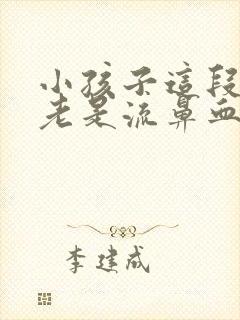 小孩子這段
老是流鼻血
李建成